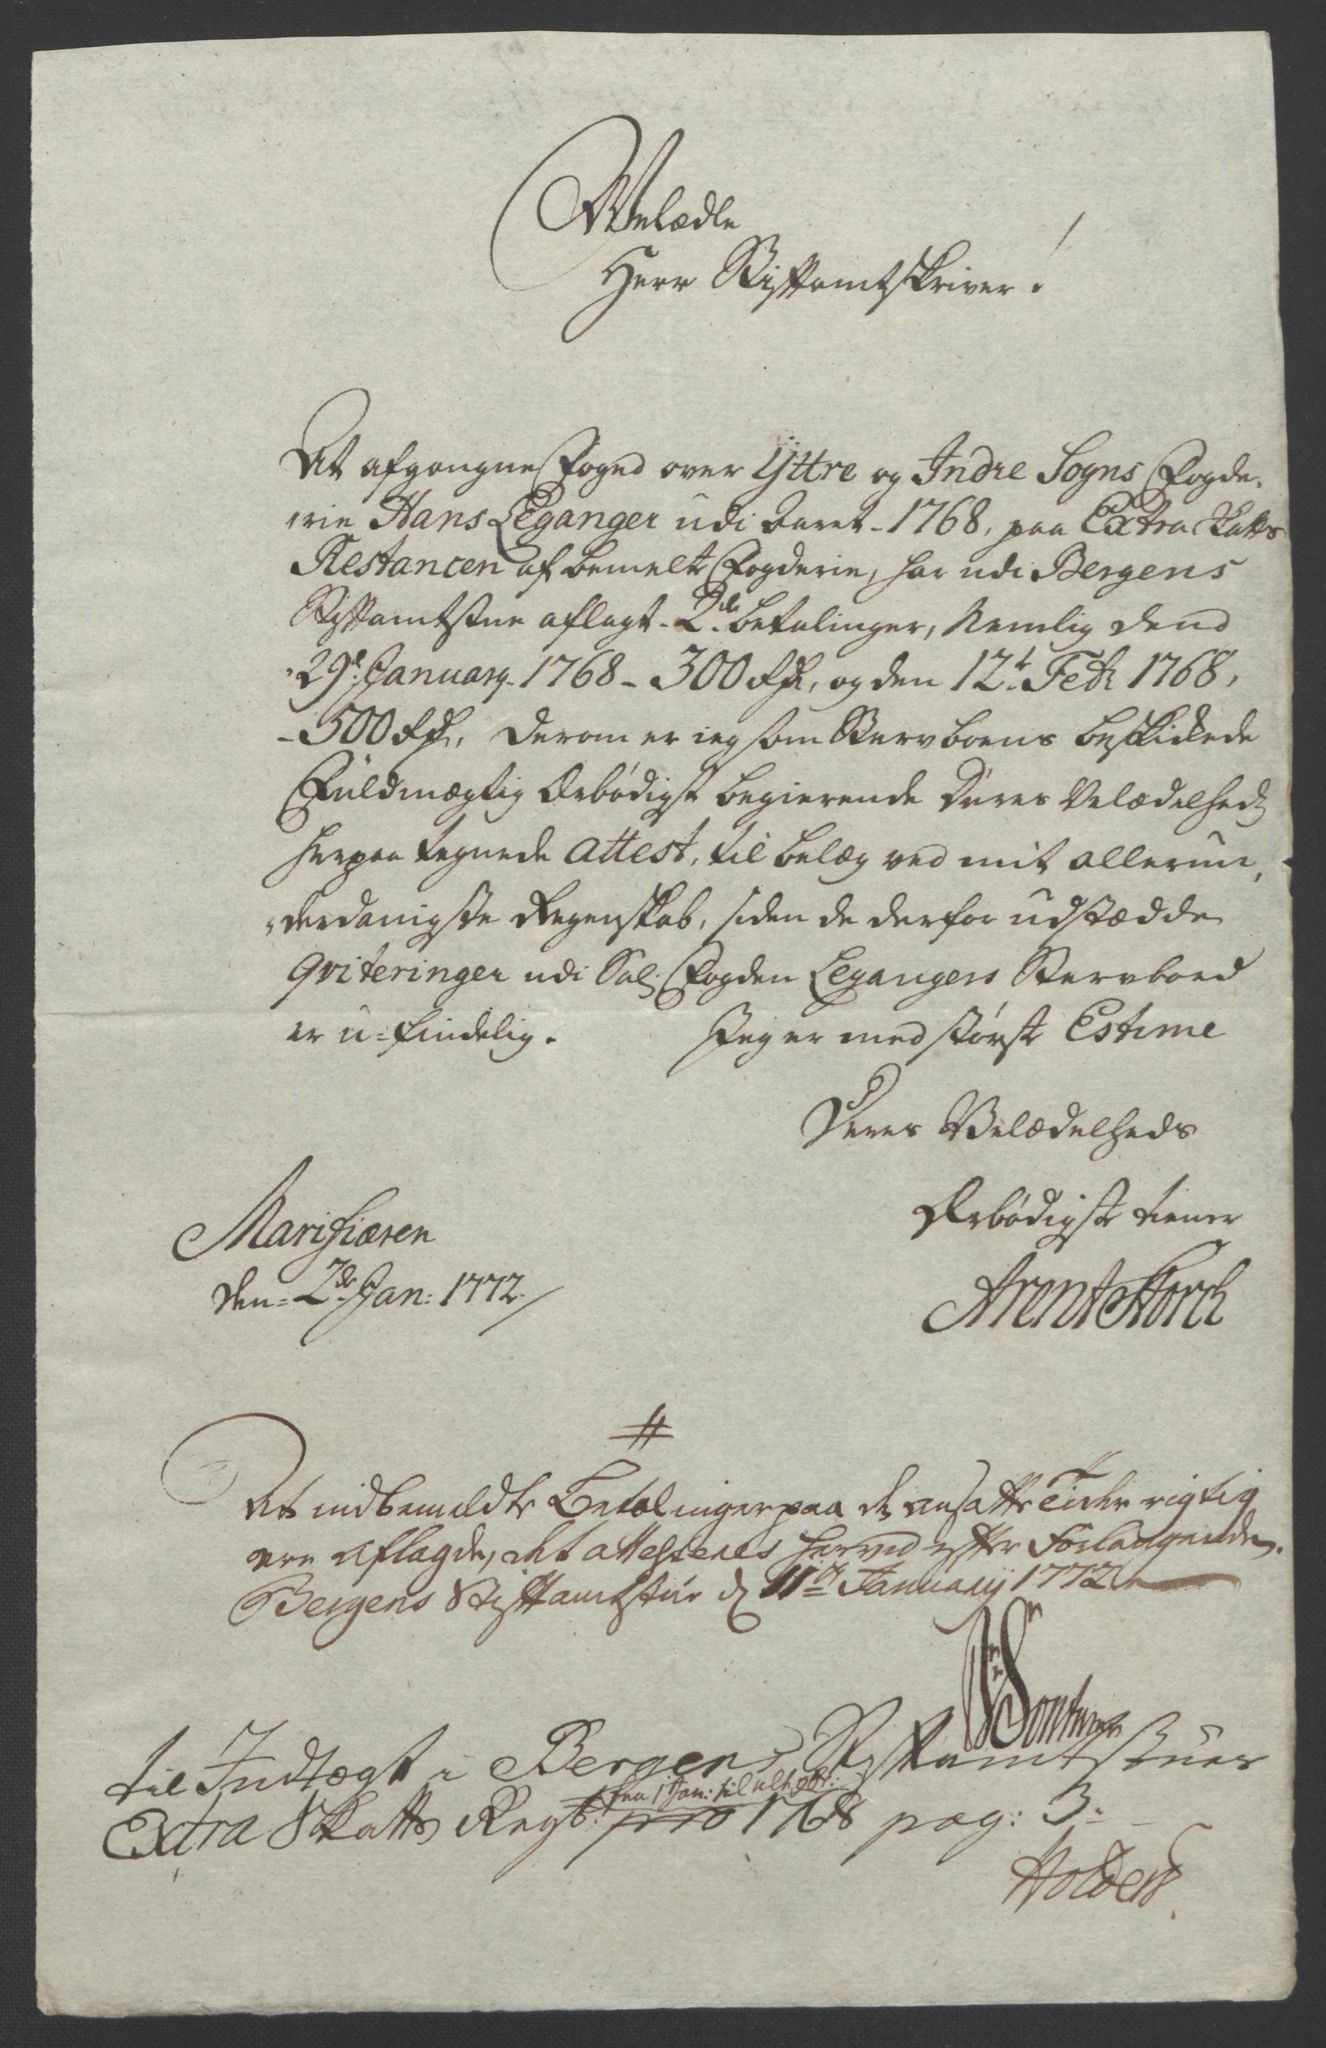 Velædle
Herr Stiftamtskriver!
At afgangne Foged over Yttre og Indre Sogns Fogde-
rie Hans Leganger udi Aaret 1768, paa Extra Skatts
Restancen af bemelte Fogderie, har udi Bergens
Stiftamtstue aflagt 2de betalinger, Nemlig dend
29de January 1768 - 300 Rdr, og den 12te Febr 1768,
- 500 Rdr, Derom er ieg som Stervboens beskikkede
Fuldmægtig Ærbødigst begierende Deres Velædelhedz
herpaa tegnede Attest, til belæg ved mit allerun-
derdanigste Regenskab, siden de derfor udstædde
Qviteringer udi Sal: Fogden Legangers Stervboed
er u-findelig. Jeg er med størst Estime
Deres Velædelheds
Ærbødigste tiener
Marifiæren
den 2de Jan: 1772
Arent Storch
At indbemeldte Betalinger paa de ansatte Tider rigtig
ere aflagde, det attesteres herved efter Forlangende.
Bergens Stiftamtstue d 11te January 1772
til Indtægt i Bergens Stiftamtstues
fra 1 Jan: til ult
Extra Skatts Regb: pro 1768 pag: 3.